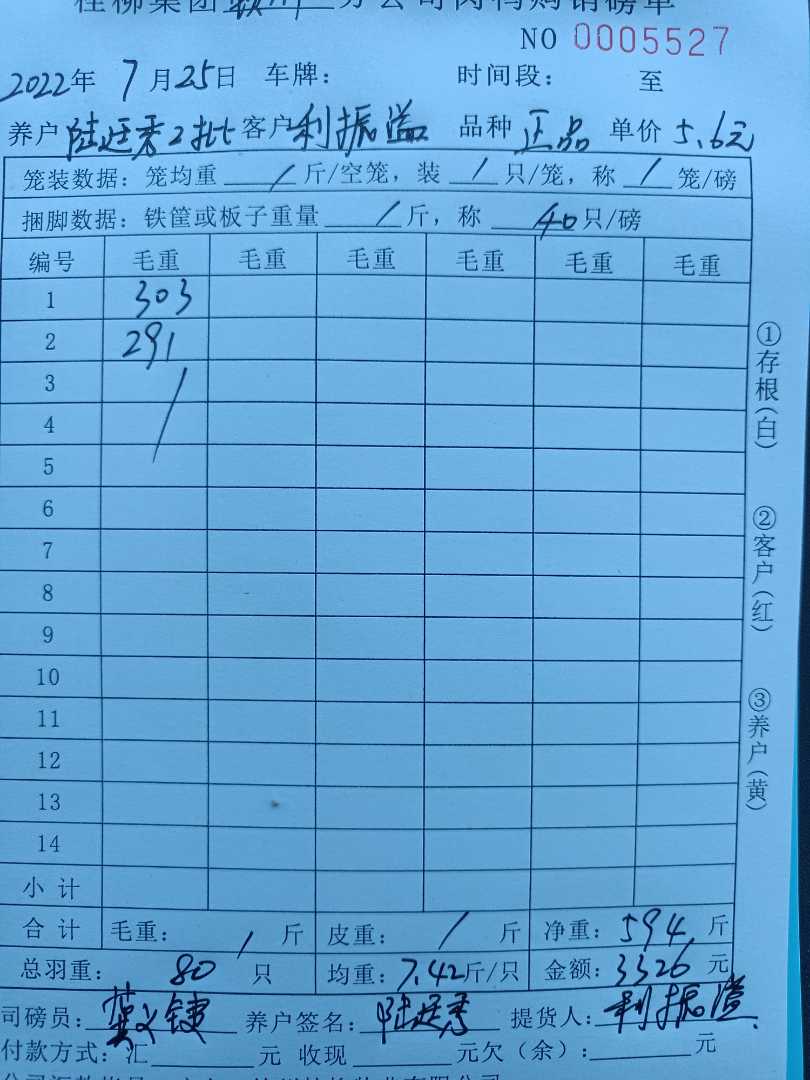 桂柳集团 分公司肉鸭购销磅单
NO 0005527
2022年 7月25日 车牌: 时间段: 至
养户 陆廷秀2批 客户 利振溢 品种 正品 单价 5.6元
笼装数据: 笼均重 / 斤/空笼, 装 / 只/笼, 称 / 笼/磅
捆脚数据: 铁筐或板子重量 / 斤, 称 40只/磅
编号 毛重 毛重 毛重 毛重 毛重 毛重
1 303
2 291
3 /
4
5
6
7
8
9
10
11
12
13
14
小计
合计 毛重: / 斤 皮重: / 斤 净重: 594 斤
总羽重: 80 只 均重: 7.42斤/只 金额: 3326 元
司磅员: 养户签名: 陆廷秀 提货人: 利振溢
付款方式: 汇 元 收现 元欠(余): 元
①存根(白)
②客户(红)
③养户(黄)